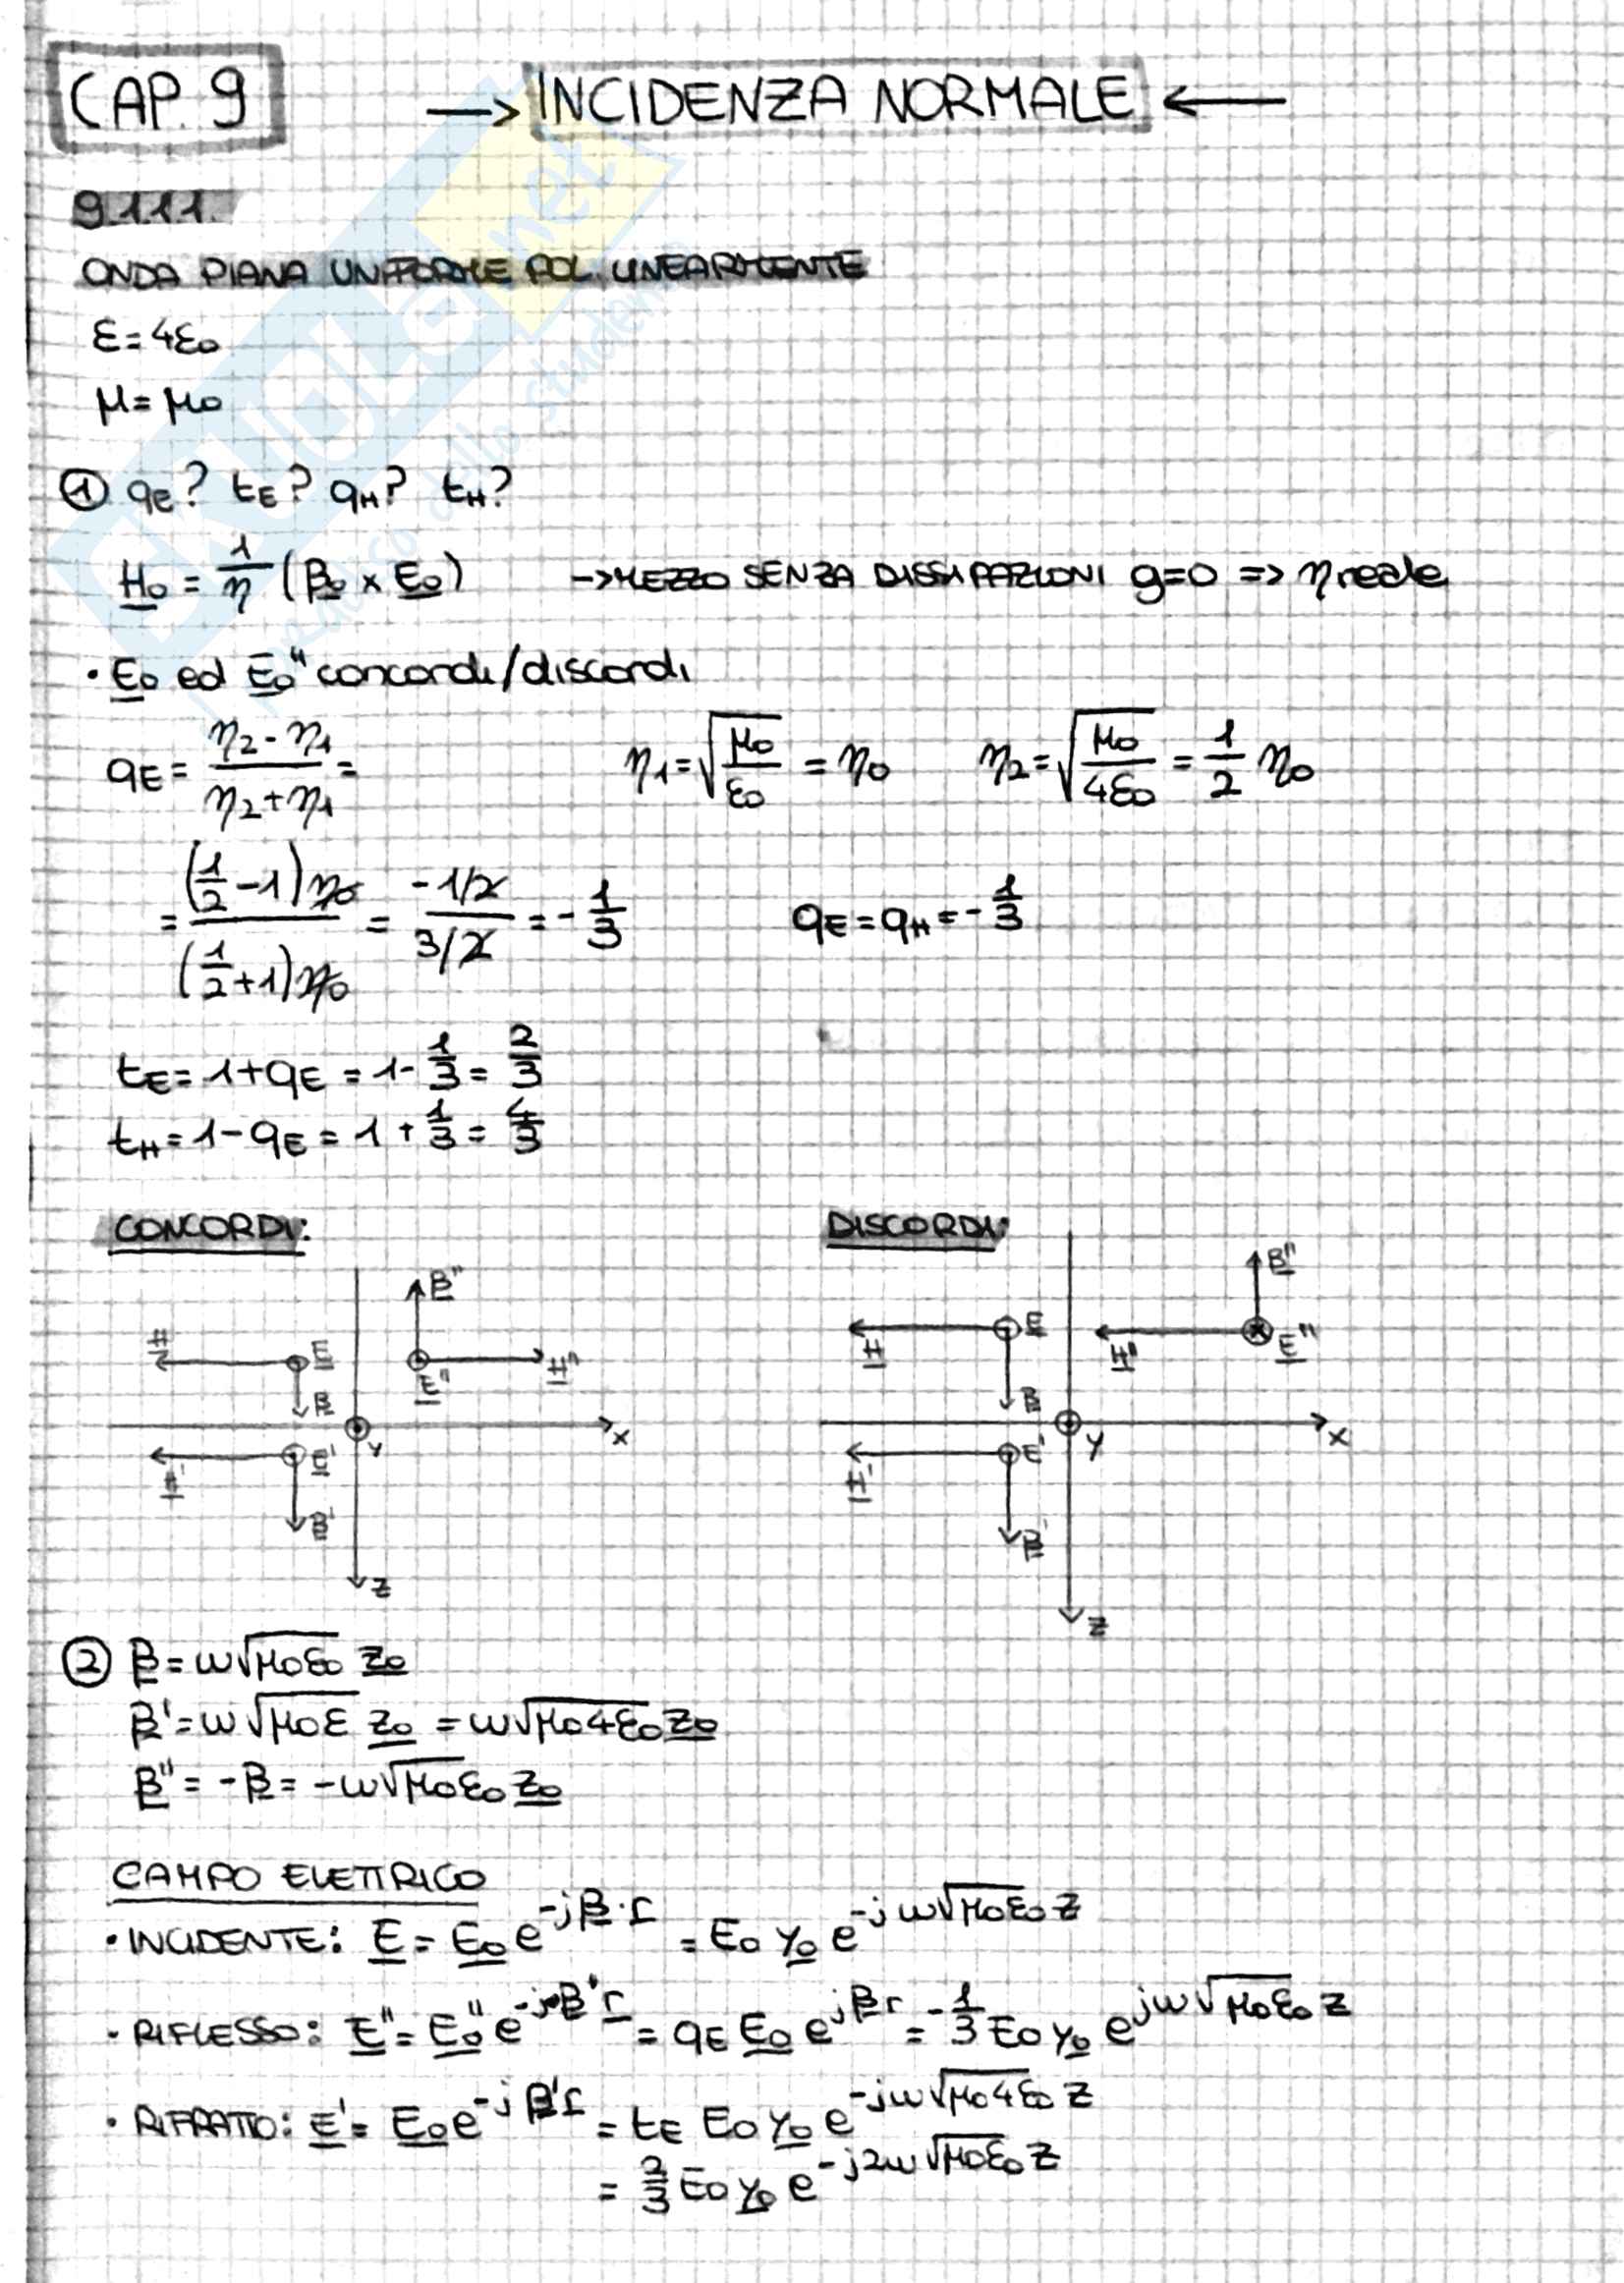 CAP. 9 → INCIDENZA NORMALE ←
9.1.1.1.
ONDA PIANA UNIFORME POL. LINEARMENTE
ε = 4ε₀
μ = μ₀
① qE? tE? qH? tH?
H₀ = 1/η (β₀ × E₀) → MEZZO SENZA DISSIPAZIONI g=0 => η reale
• E₀ ed E₀" concordi/discordi
qE = (η₂ - η₁)/(η₂ + η₁) = η₁ = √(μ₀/ε₀) = η₀ η₂ = √(μ₀/4ε₀) = 1/2 η₀
= (1/2 - 1)η₀ / (1/2 + 1)η₀ = (-1/2)/(3/2) = - 1/3 qE = qH = - 1/3
tE = 1 + qE = 1 - 1/3 = 2/3
tH = 1 - qE = 1 + 1/3 = 4/3
CONCORDI: DISCORDI:
β" β"
H E E" H" H E H" E"
β β
y x y x
H' E' H' E'
β' β'
z z
② β = ω√μ₀ε₀ z₀
β' = ω√μ₀ε z₀ = ω√μ₀4ε₀ z₀
β" = -β = -ω√μ₀ε₀ z₀
CAMPO ELETTRICO
• INCIDENTE: E = E₀ e^(-jβ·r) = E₀ y₀ e^(-jω√μ₀ε₀ z)
• RIFLESSO: E" = E₀" e^(-jβ'r) = qE E₀ e^(jβr) = - 1/3 E₀ y₀ e^(jω√μ₀ε₀ z)
• RIFRATTO: E' = E₀ e^(-jβ'r) = tE E₀ y₀ e^(-jω√μ₀4ε₀ z)
= 2/3 E₀ y₀ e^(-j2ω√μ₀ε₀ z)